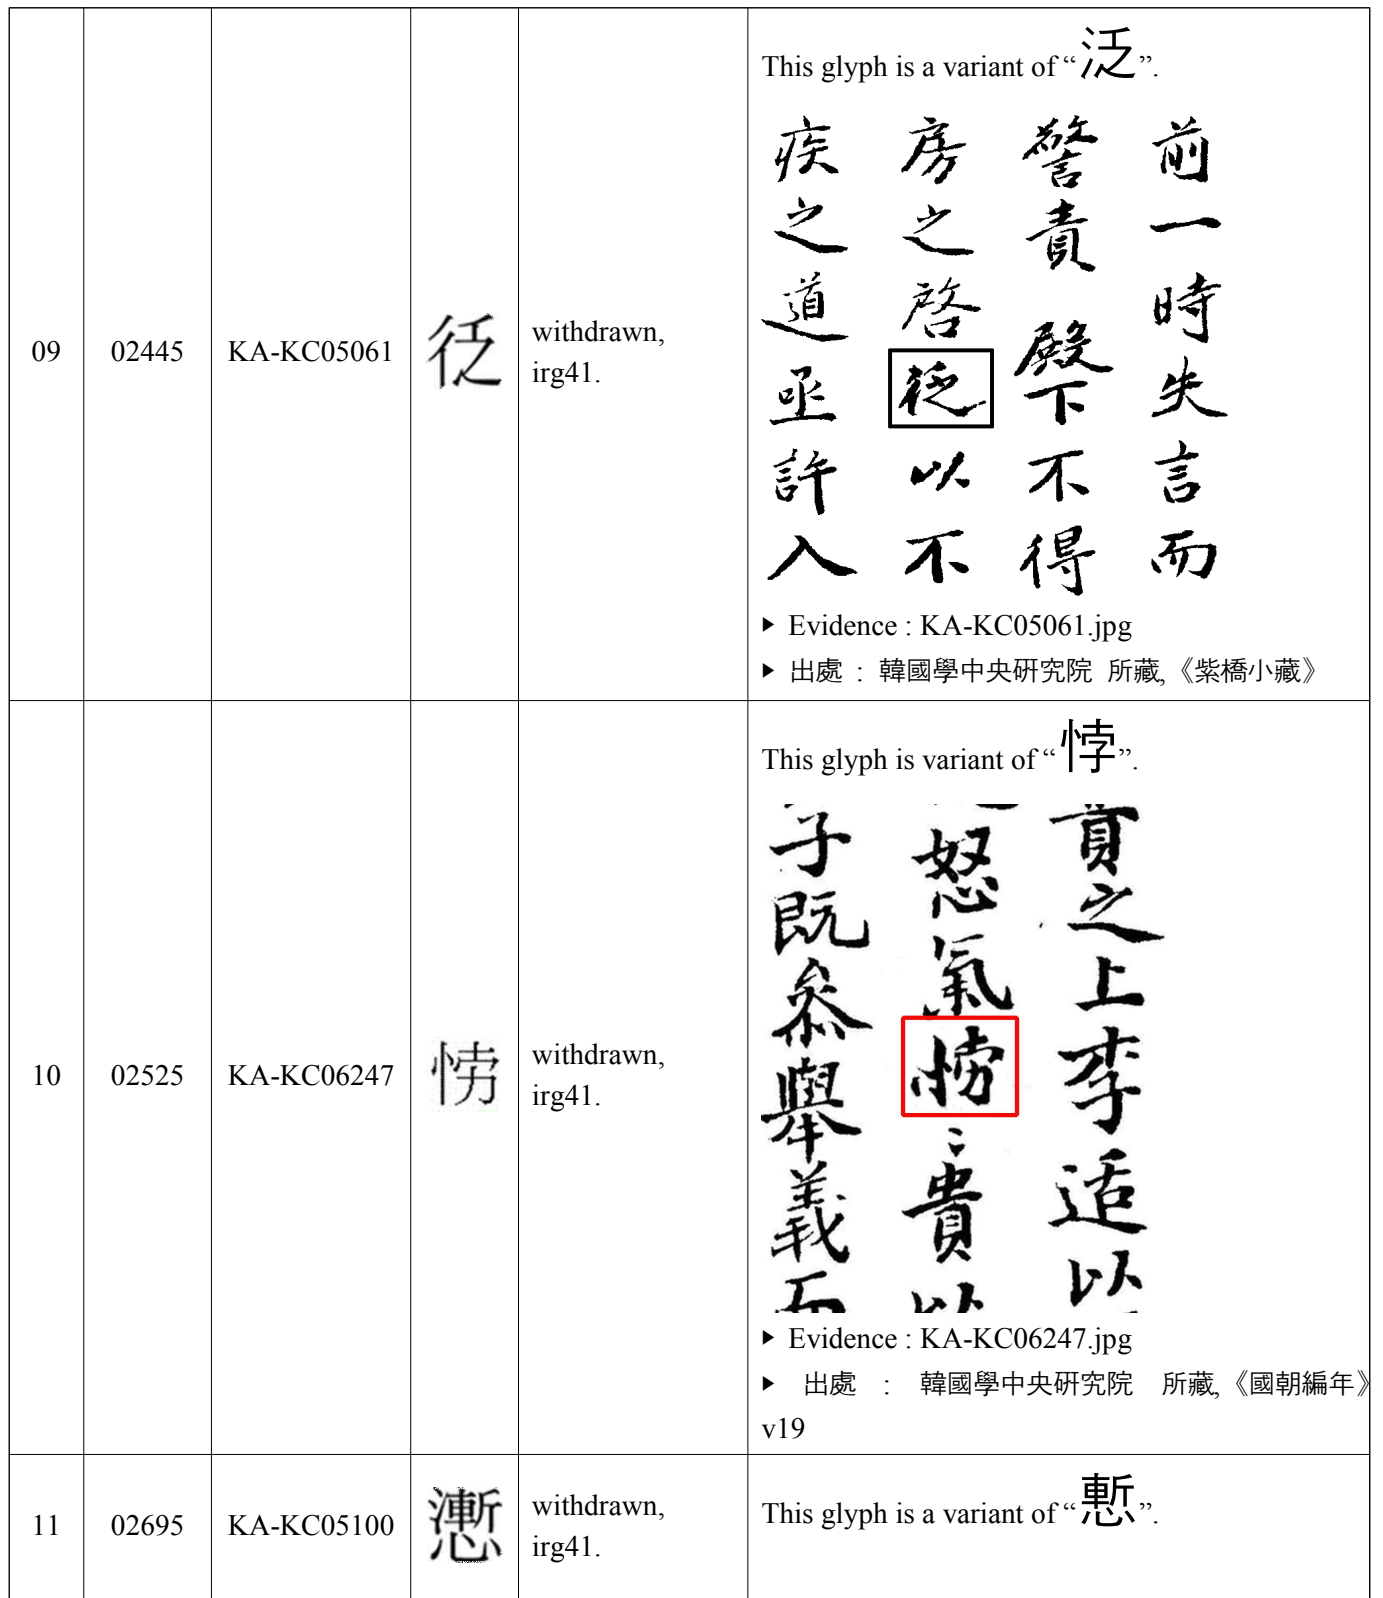 09
02445
KA-KC05061
withdrawn,
irg41.
This glyph is a variant of “泛”.
前一時失言而
警責 殿下不得
房之啓以不
疾之道亟許入
▶ Evidence : KA-KC05061.jpg
▶ 出處 : 韓國學中央硏究院 所藏,《紫橋小藏》
10
02525
KA-KC06247
withdrawn,
irg41.
This glyph is variant of “悖”.
之上李适以
怒氣貴以
子既叅舉義而
▶ Evidence : KA-KC06247.jpg
▶ 出處 : 韓國學中央硏究院 所藏,《國朝編年》
v19
11
02695
KA-KC05100
withdrawn,
irg41.
This glyph is a variant of “慙”.